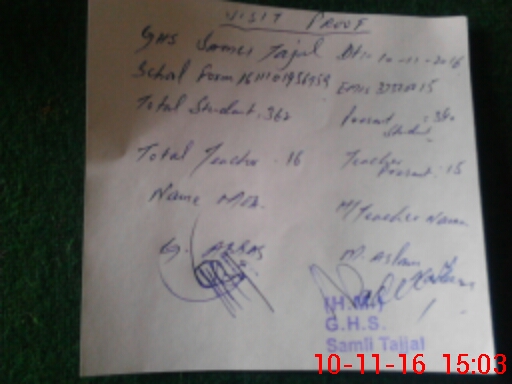 VISIT PROOF
GHS Samli Tajal Dt:- 10-11-2016
School Form EMIS
Total Student: 362 Present Student:
Total Teacher: 16 Teacher Present: 15
Name MEA. H/Teacher Name
G. ABBAS M. Aslam
(H.M.)
G.H.S.
Samli Tajjal
10-11-16 15:03